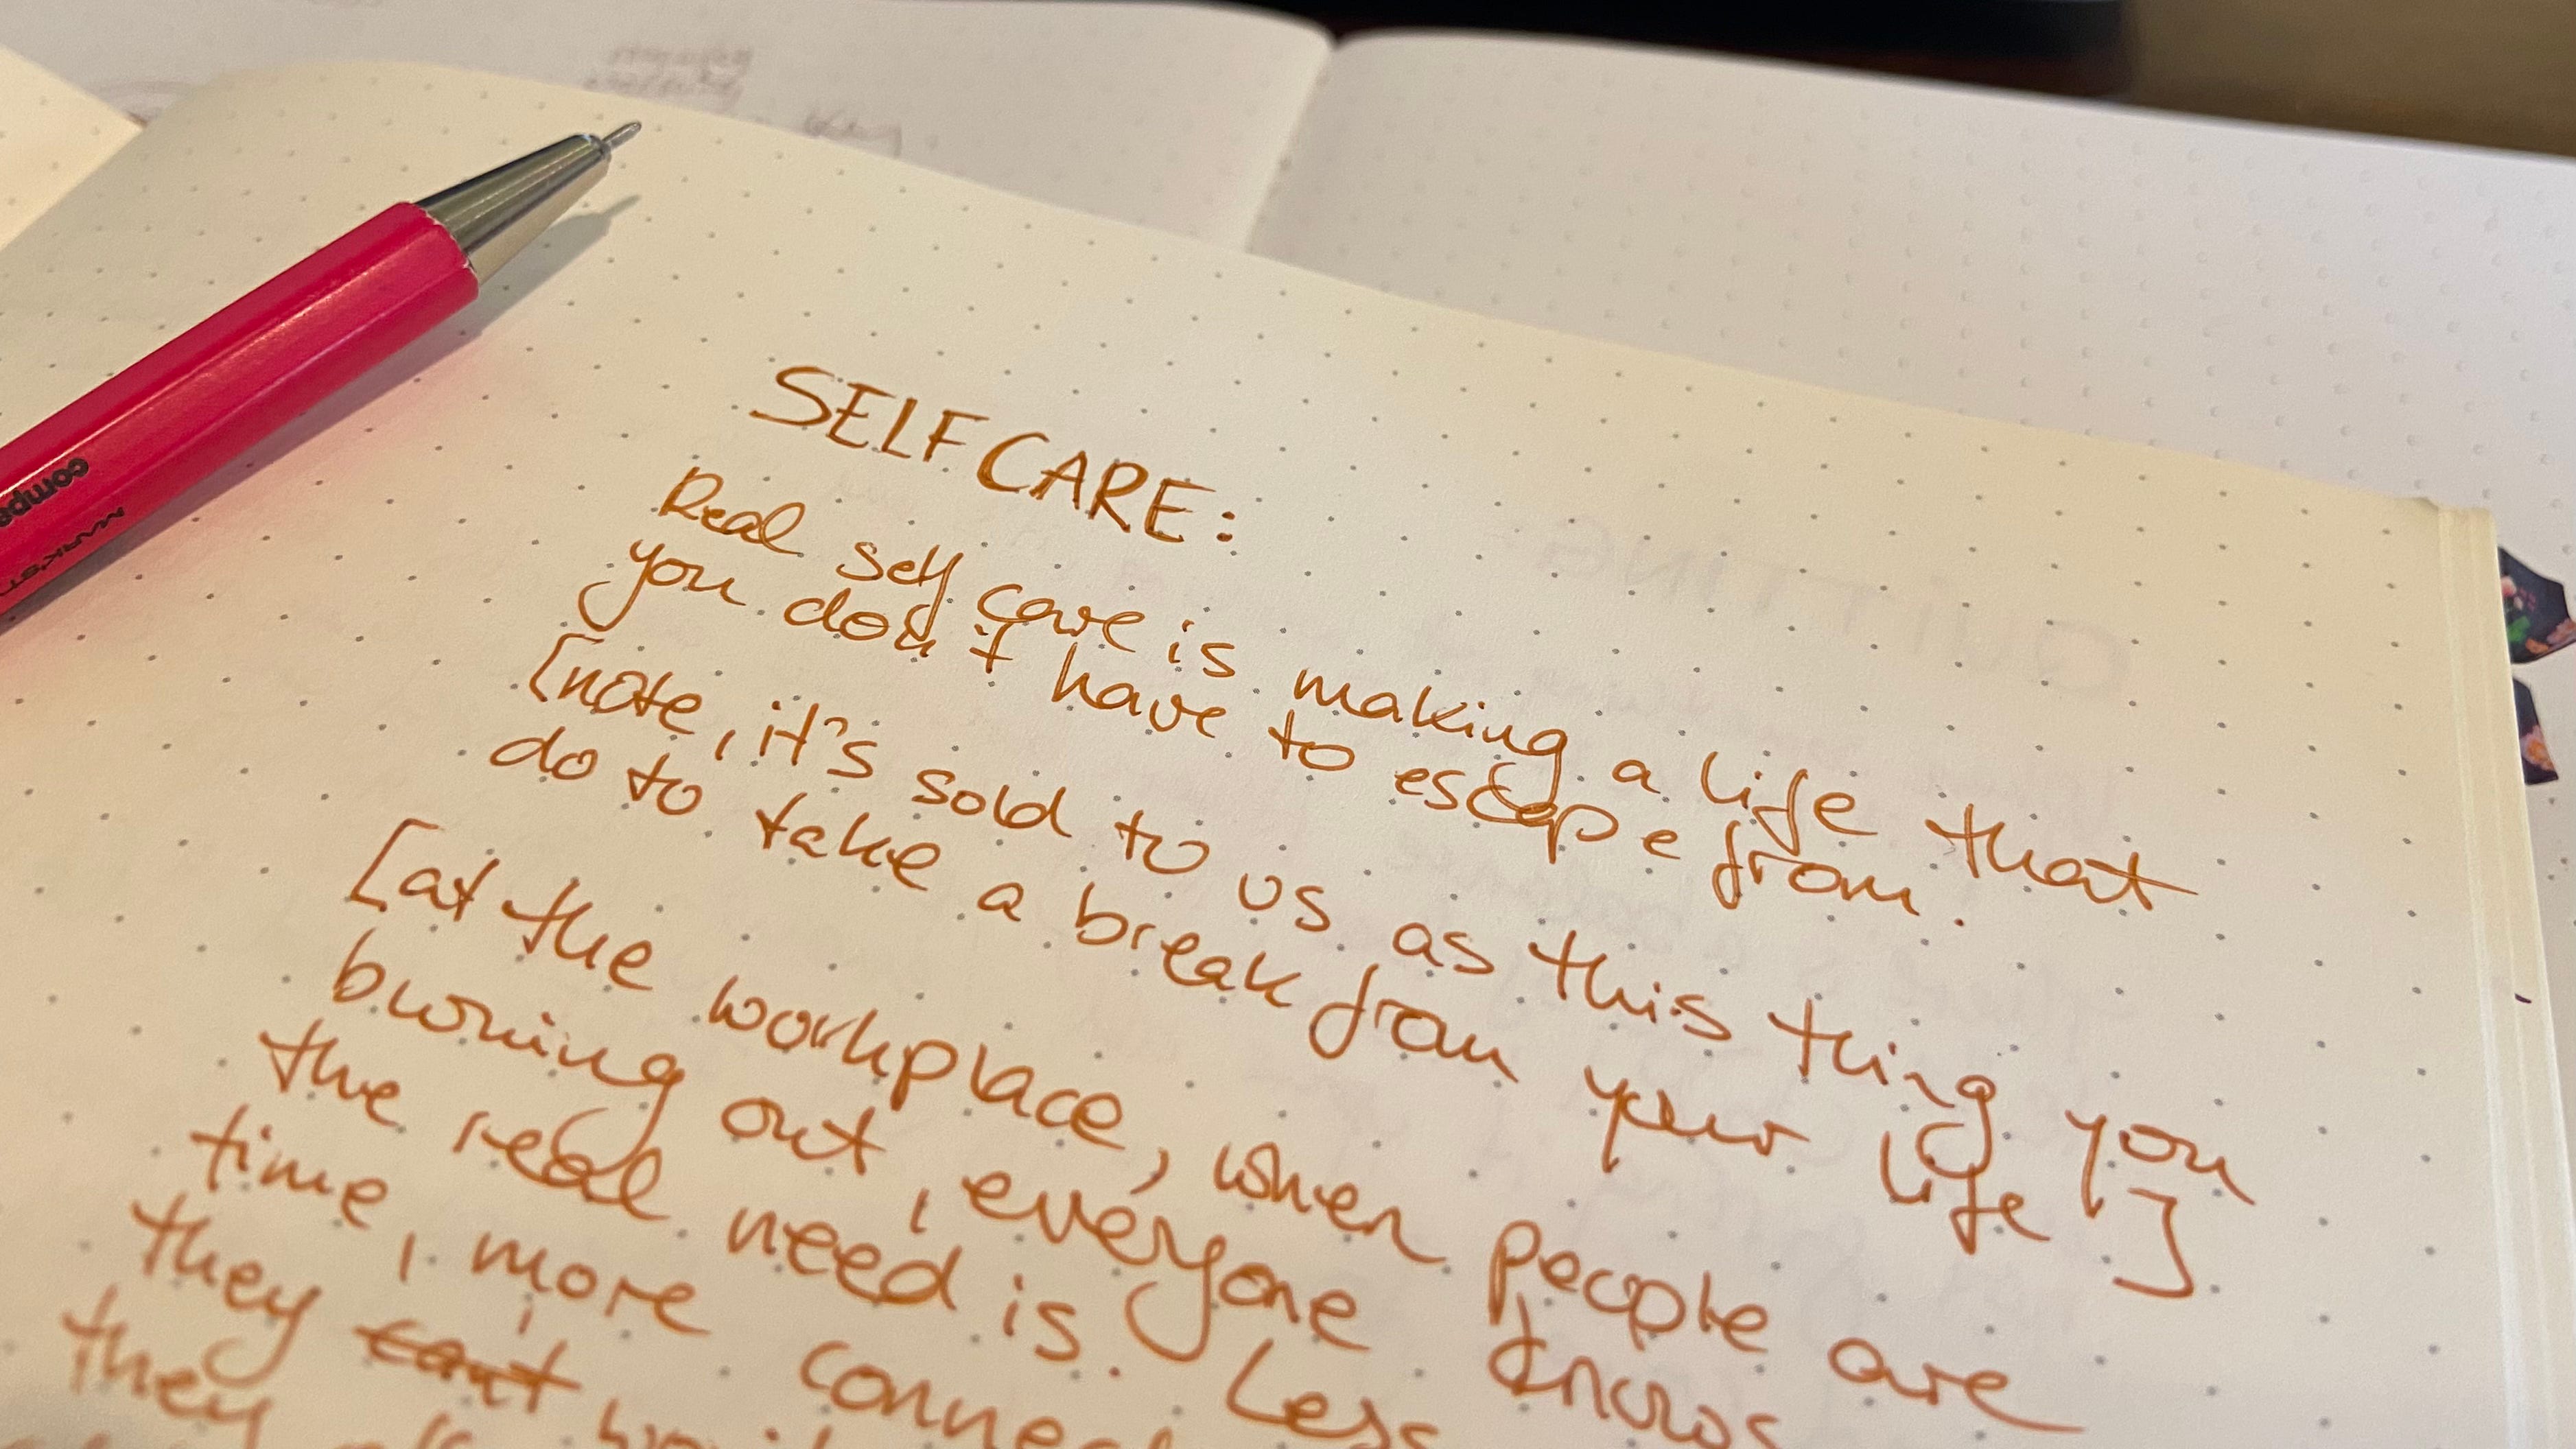 SELFCARE:
Real self care is making a life that
you don't have to escape from.
[note, it's sold to us as this thing you
do to take a break from your life!]
[at the workplace, when people are
burning out, everyone knows
the real need is. Less
time, more
they can't
they
MARK'S